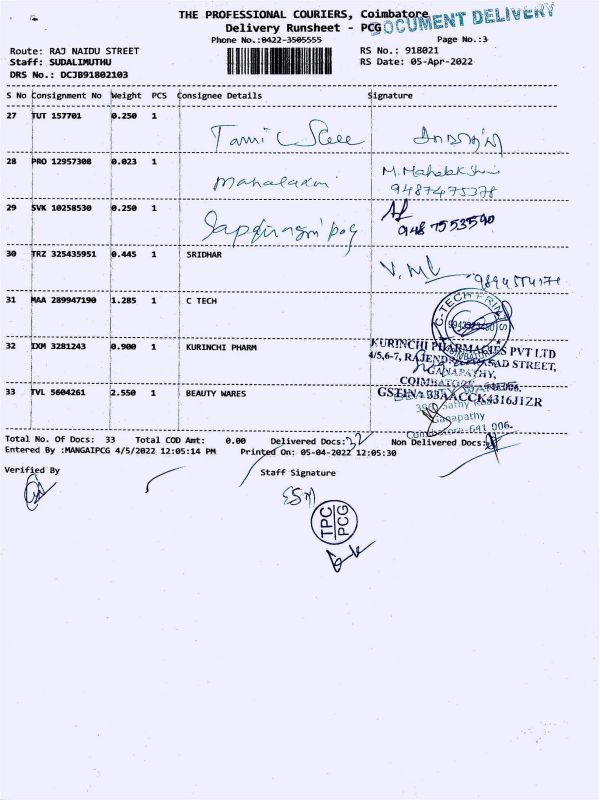 THE PROFESSIONAL COURIERS, Coimbatore
DOCUMENT DELIVERY
Delivery Runsheet - PCG
Phone No.:0422-3505555
Page No.:3
Route: RAJ NAIDU STREET
RS No.: 918021
Staff: SUDALIMUTHU
RS Date: 05-Apr-2022
DRS No.: DCJB91802103
S No Consignment No Weight PCS Consignee Details Signature
27 TUT 157701 0.250 1
28 PRO 12957308 0.023 1 Mahalaxmi M. Mahalakshmi
9487475378
29 SVK 10258530 0.250 1
948 7553590
30 TRZ 325435951 0.445 1 SRIDHAR
31 MAA 289947190 1.285 1 C TECH
C-TECH PRINTS
COIMBATORE
32 IXM 3281243 0.900 1 KURINCHI PHARM
KURINCHI PHARMACIES PVT LTD
4/5,6-7, RAJENDRA PRASAD STREET,
GANAPATHY,
COIMBATORE
GSTIN: 33AACCK4316J1ZR
33 TVL 5604261 2.550 1 BEAUTY WARES
Sathy Road
Ganapathy
Coimbatore-641 006.
Total No. Of Docs: 33 Total COD Amt: 0.00 Delivered Docs: 32 Non Delivered Docs:
Entered By :MANGAIPCG 4/5/2022 12:05:14 PM Printed On: 05-04-2022 12:05:30
Verified By Staff Signature
TPC
PCG